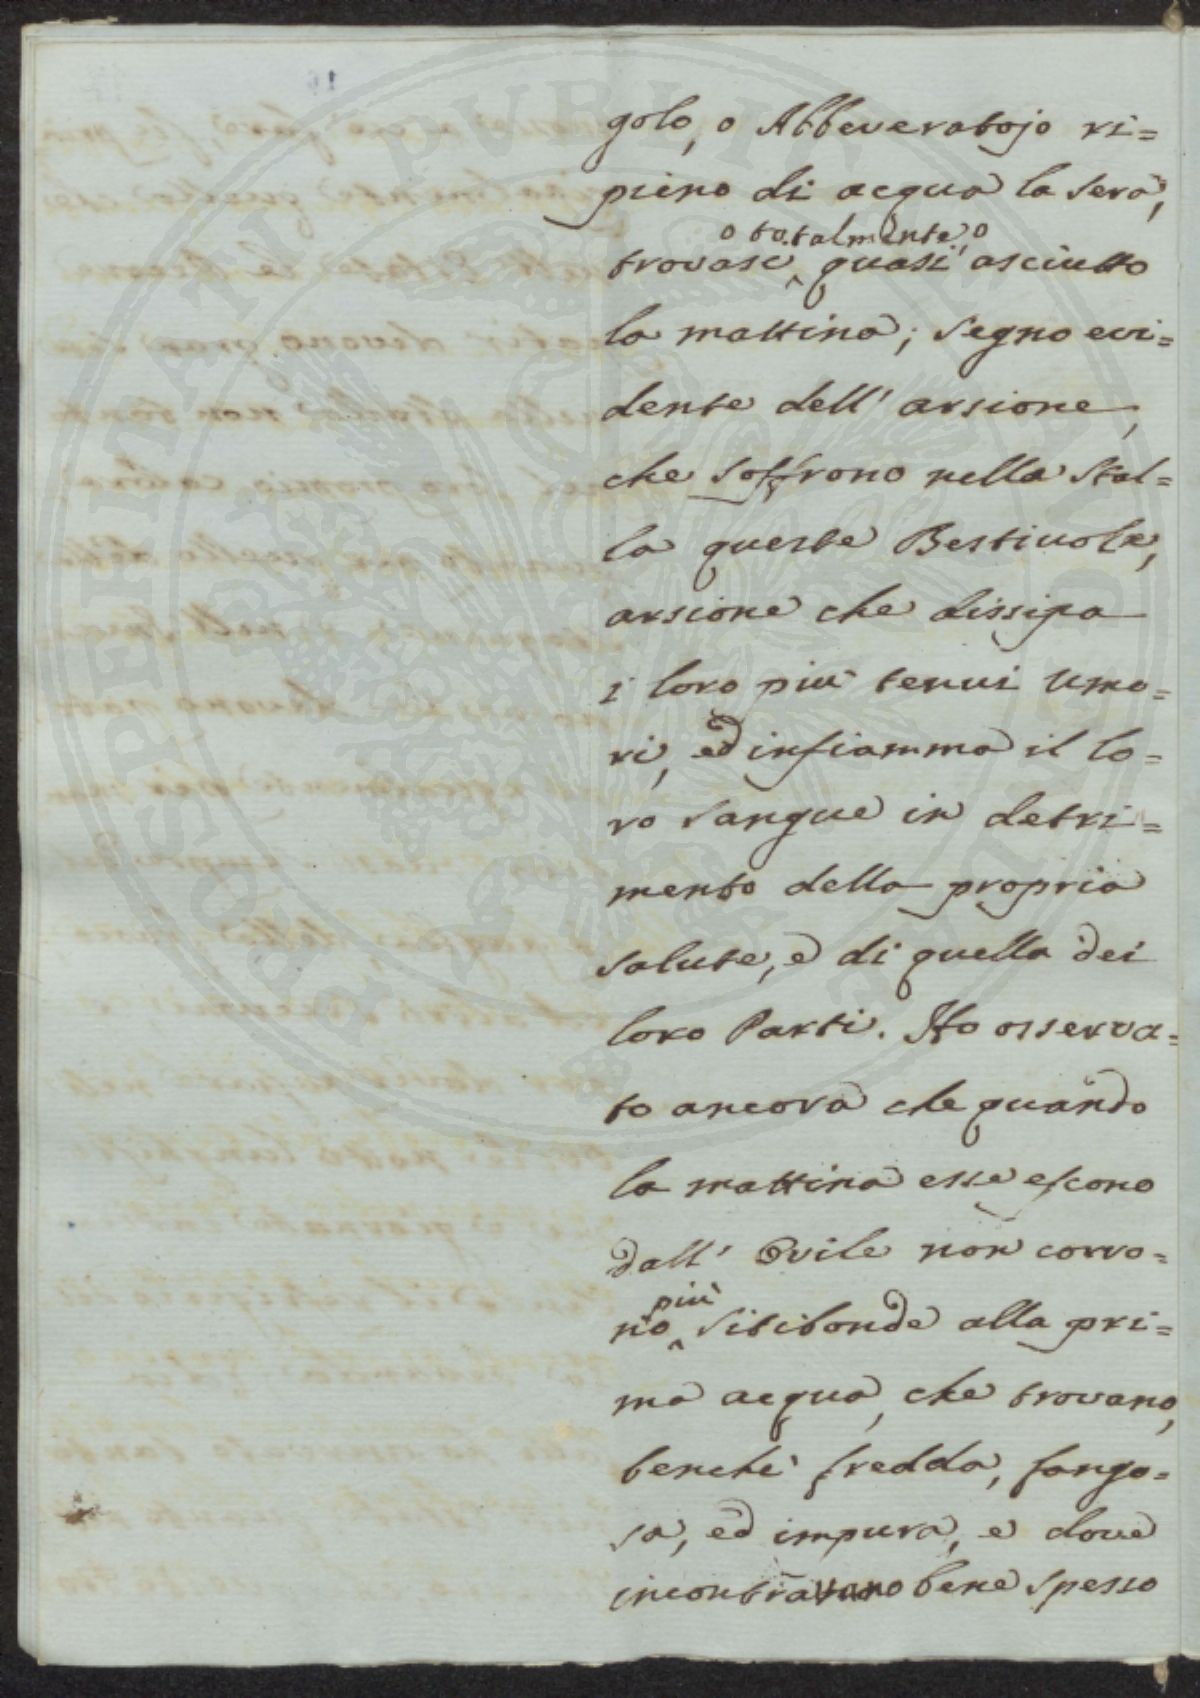 golo, o Abbeveratojo ri=
pieno di acqua la sera,
o totalmente, o
trovasi quasi asciutto
la mattina; segno evi=
dente dell' arsione,
che soffrono nella stal=
la queste Bestivole,
arsione che dissipa
i loro più tenui umo=
ri, ed infiamma il lo=
ro sangue in detri=
mento della propria
salute, e di quella dei
loro Parti. Ho osserva=
to ancora che quando
la mattina esse escono
dall' Ovile non corro=
più
no sitibonde alla pri=
ma acqua, che trovano,
benchè fredda, fango=
sa, ed impura, e dove
bene spesso